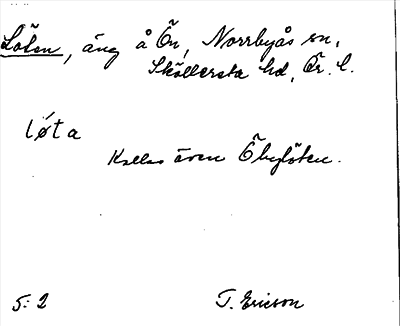 Löten, äng å Ön, Norrbyås sn,
Sköllersta hd, Ör. l.
løta
Kallas även Öbylöten.
5: 2 T. Ericson